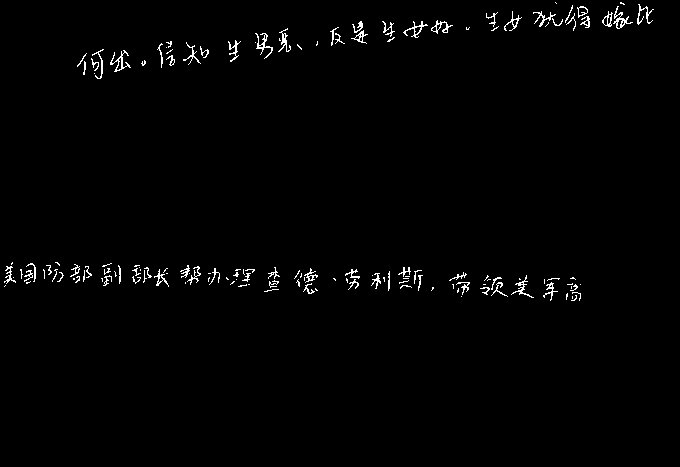 何出。信知生男恶,反是生女好。生女犹得嫁比
美国防部副部长帮办理查德·劳利斯,带领美军高